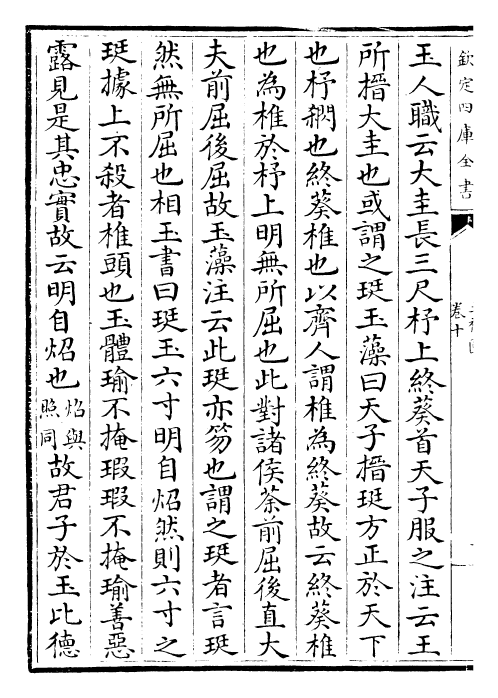 欽定四庫全書
卷十
玉人職云大圭長三尺杼上終葵首天子服之注云王
所搢大圭也或謂之珽玉藻曰天子搢珽方正於天下
也杼閷也終葵椎也以齊人謂椎為終葵故云終葵椎
也為椎於杼上明無所屈也此對諸侯荼前屈後直大
夫前屈後屈故玉藻注云此珽亦笏也謂之珽者言珽
然無所屈也相玉書曰珽玉六寸明自炤然則六寸之
珽據上不殺者椎頭也玉體瑜不掩瑕瑕不掩瑜善惡
露見是其忠實故云明自炤也炤與照同故君子於玉比德